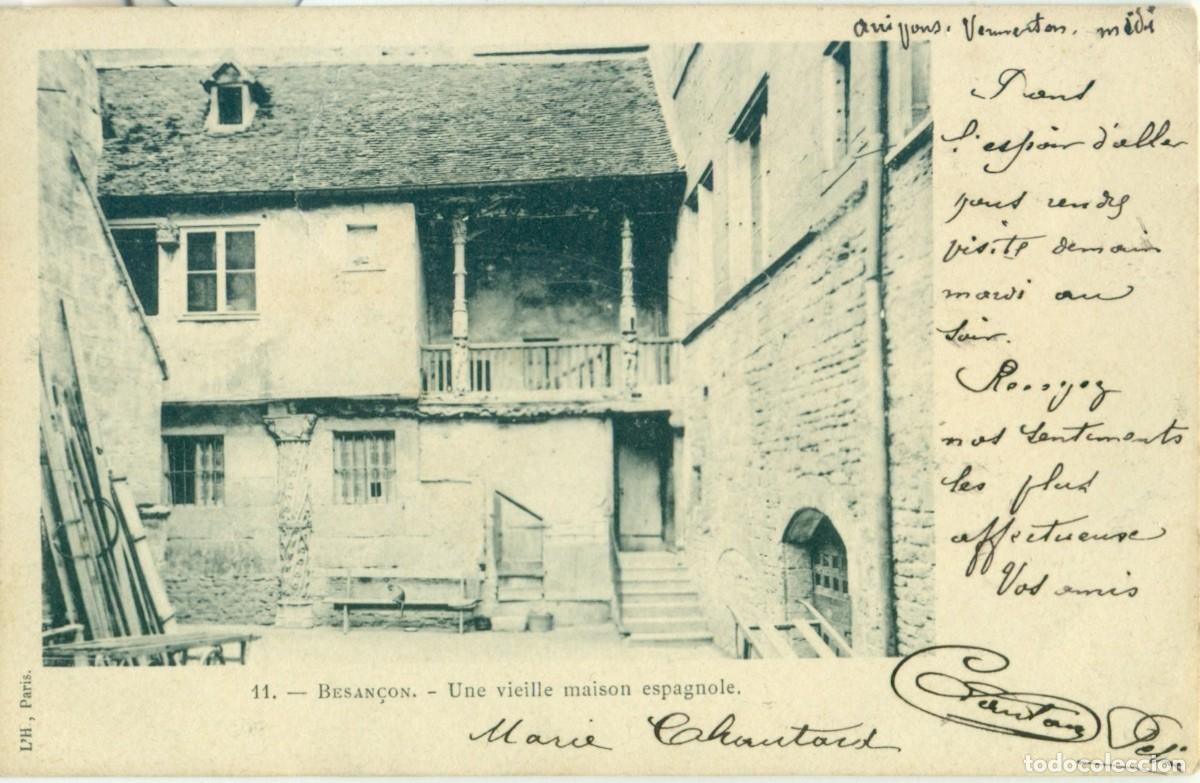 midi
Tout
l'espoir d'aller
vous rendre
visite demain
mardi au
soir.
Recevez
nos sentiments
les plus
affectueuse
Vos amis
11. — BESANÇON. - Une vieille maison espagnole.
L'H., Paris.
Marie Chautard
todocoleccion.net